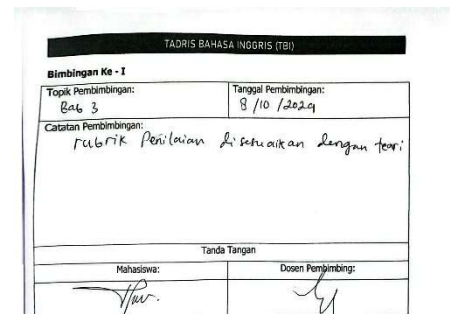 TADRIS BAHASA INGGRIS (TBI)
Bimbingan Ke - I
Topik Pembimbingan:
Bab 3
Tanggal Pembimbingan:
8 /10 /2024
Catatan Pembimbingan:
rubrik Penilaian disesuaikan dengan teori
Tanda Tangan
Mahasiswa:
Dosen Pembimbing: